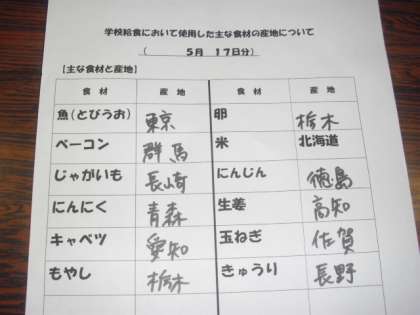 学校給食において使用した主な食材の産地について
( 5月 17日分)
【主な食材と産地】
食材 産地 食材 産地
魚(とびうお) 東京 卵 栃木
ベーコン 群馬 米 北海道
じゃがいも 長崎 にんじん 徳島
にんにく 青森 生姜 高知
キャベツ 愛知 玉ねぎ 佐賀
もやし 栃木 きゅうり 長野